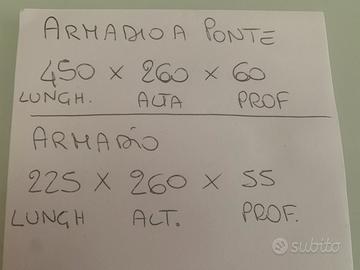 ARMADIO A PONTE
450 x 260 x 60
LUNGH. ALTA PROF
ARMADIO
225 x 260 x 55
LUNGH ALT. PROF.
subito